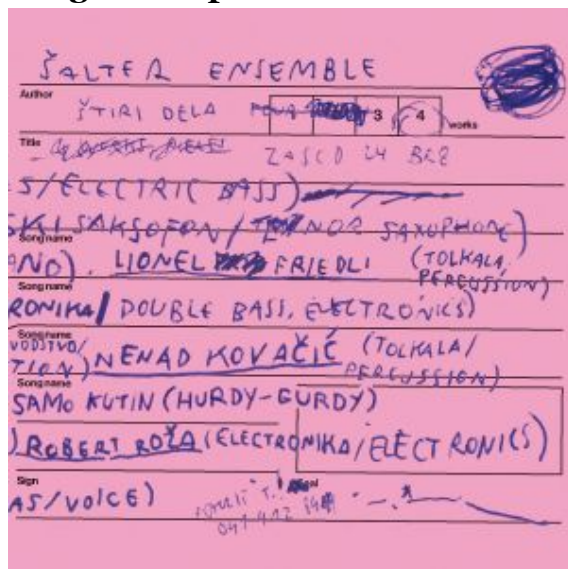 ŠALTER ENSEMBLE
Author
ŠTIRI DELA 3 4 works
Title
ZASEDBE
S/ELECTRIC BASS)
SKI SAKSOFON/TENOR SAXOPHONE)
Song name
ANO). LIONEL FRIEDLI (TOLKALA,
PERCUSSION)
Song name
RONIKA/DOUBLE BASS, ELECTRONICS)
Song name
VODSTVO/
TION) NENAD KOVAČIĆ (TOLKALA/
PERCUSSION)
Song name
SAMO KUTIN (HURDY-GURDY)
) ROBERT ROŽA (ELECTRONIKA/ELECTRONICS)
Sign
AS/VOICE)